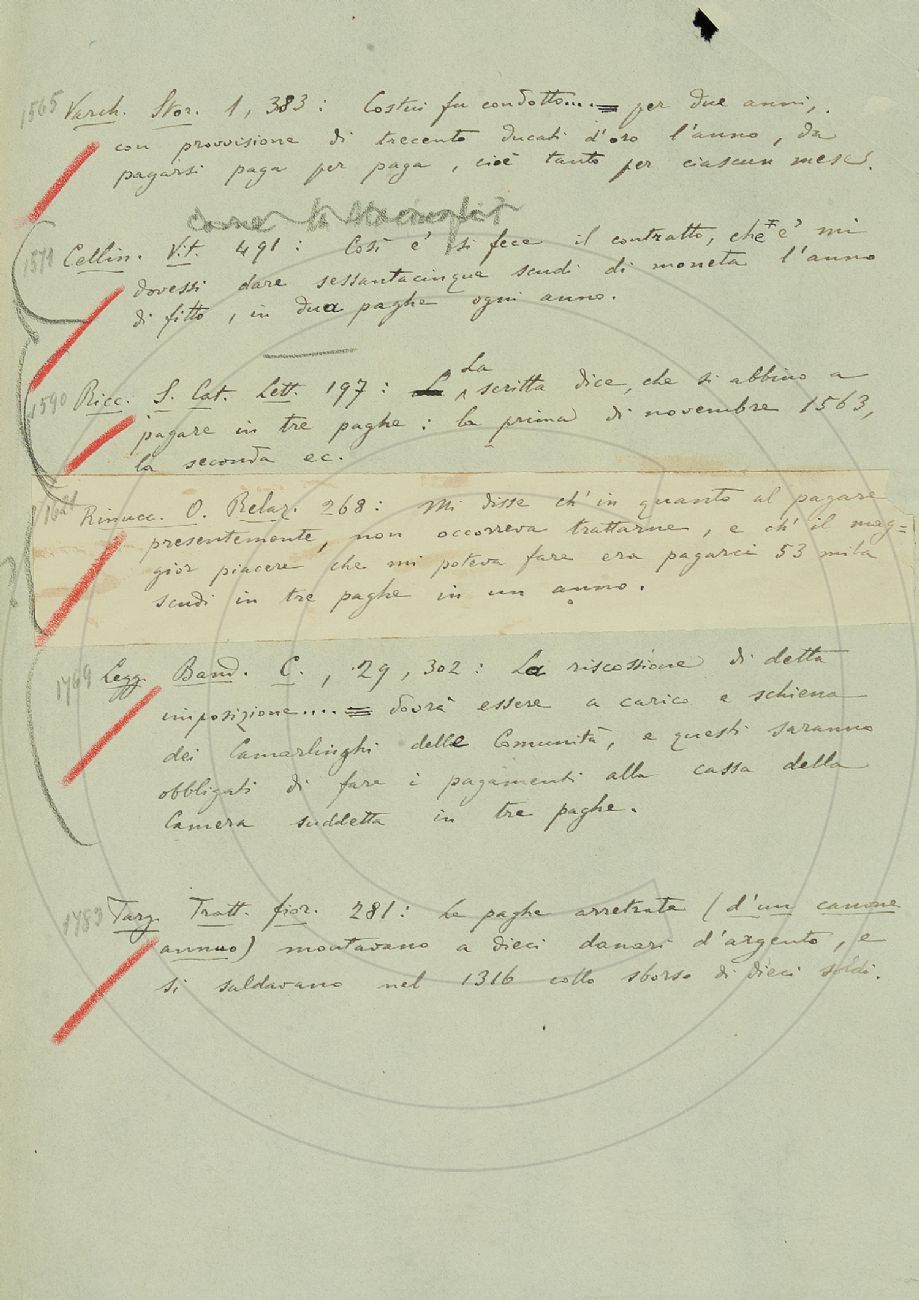 1565 Varch. Stor. 1, 383: Costui fu condotto.... = per due anni,
con provvisione di trecento ducati d'oro l'anno, da
pagarsi paga per paga, cioè tanto per ciascun mese.
1571 Cellin. Vit. 491: Così e' si fece il contratto, che e' mi
dovessi dare sessantacinque scudi di moneta l'anno
di fitto, in dua paghe ogni anno.
La
1590 Ricc. S. Cat. Lett. 197: scritta dice, che si abbino a
pagare in tre paghe: la prima di novembre 1563,
la seconda ec.
1621 Rinucc. O. Relaz. 268: Mi disse ch'in quanto al pagare
presentemente, non occorreva trattarne, e ch'il mag=
gior piacere che mi poteva fare era pagarci 53 mila
scudi in tre paghe in un anno.
1769 Legg. Band. C., 29, 302: La riscossione di detta
imposizione.... = dovrà essere a carico e schiena
dei Camarlinghi delle Comunità, e questi saranno
obbligati di fare i pagamenti alla cassa della
Camera suddetta in tre paghe.
1783 Targ. Tratt. fior. 281: Le paghe arretrate (d'un canone
annuo) montavano a dieci danari d'argento, e
si saldavano nel 1316 collo sborso di dieci soldi.